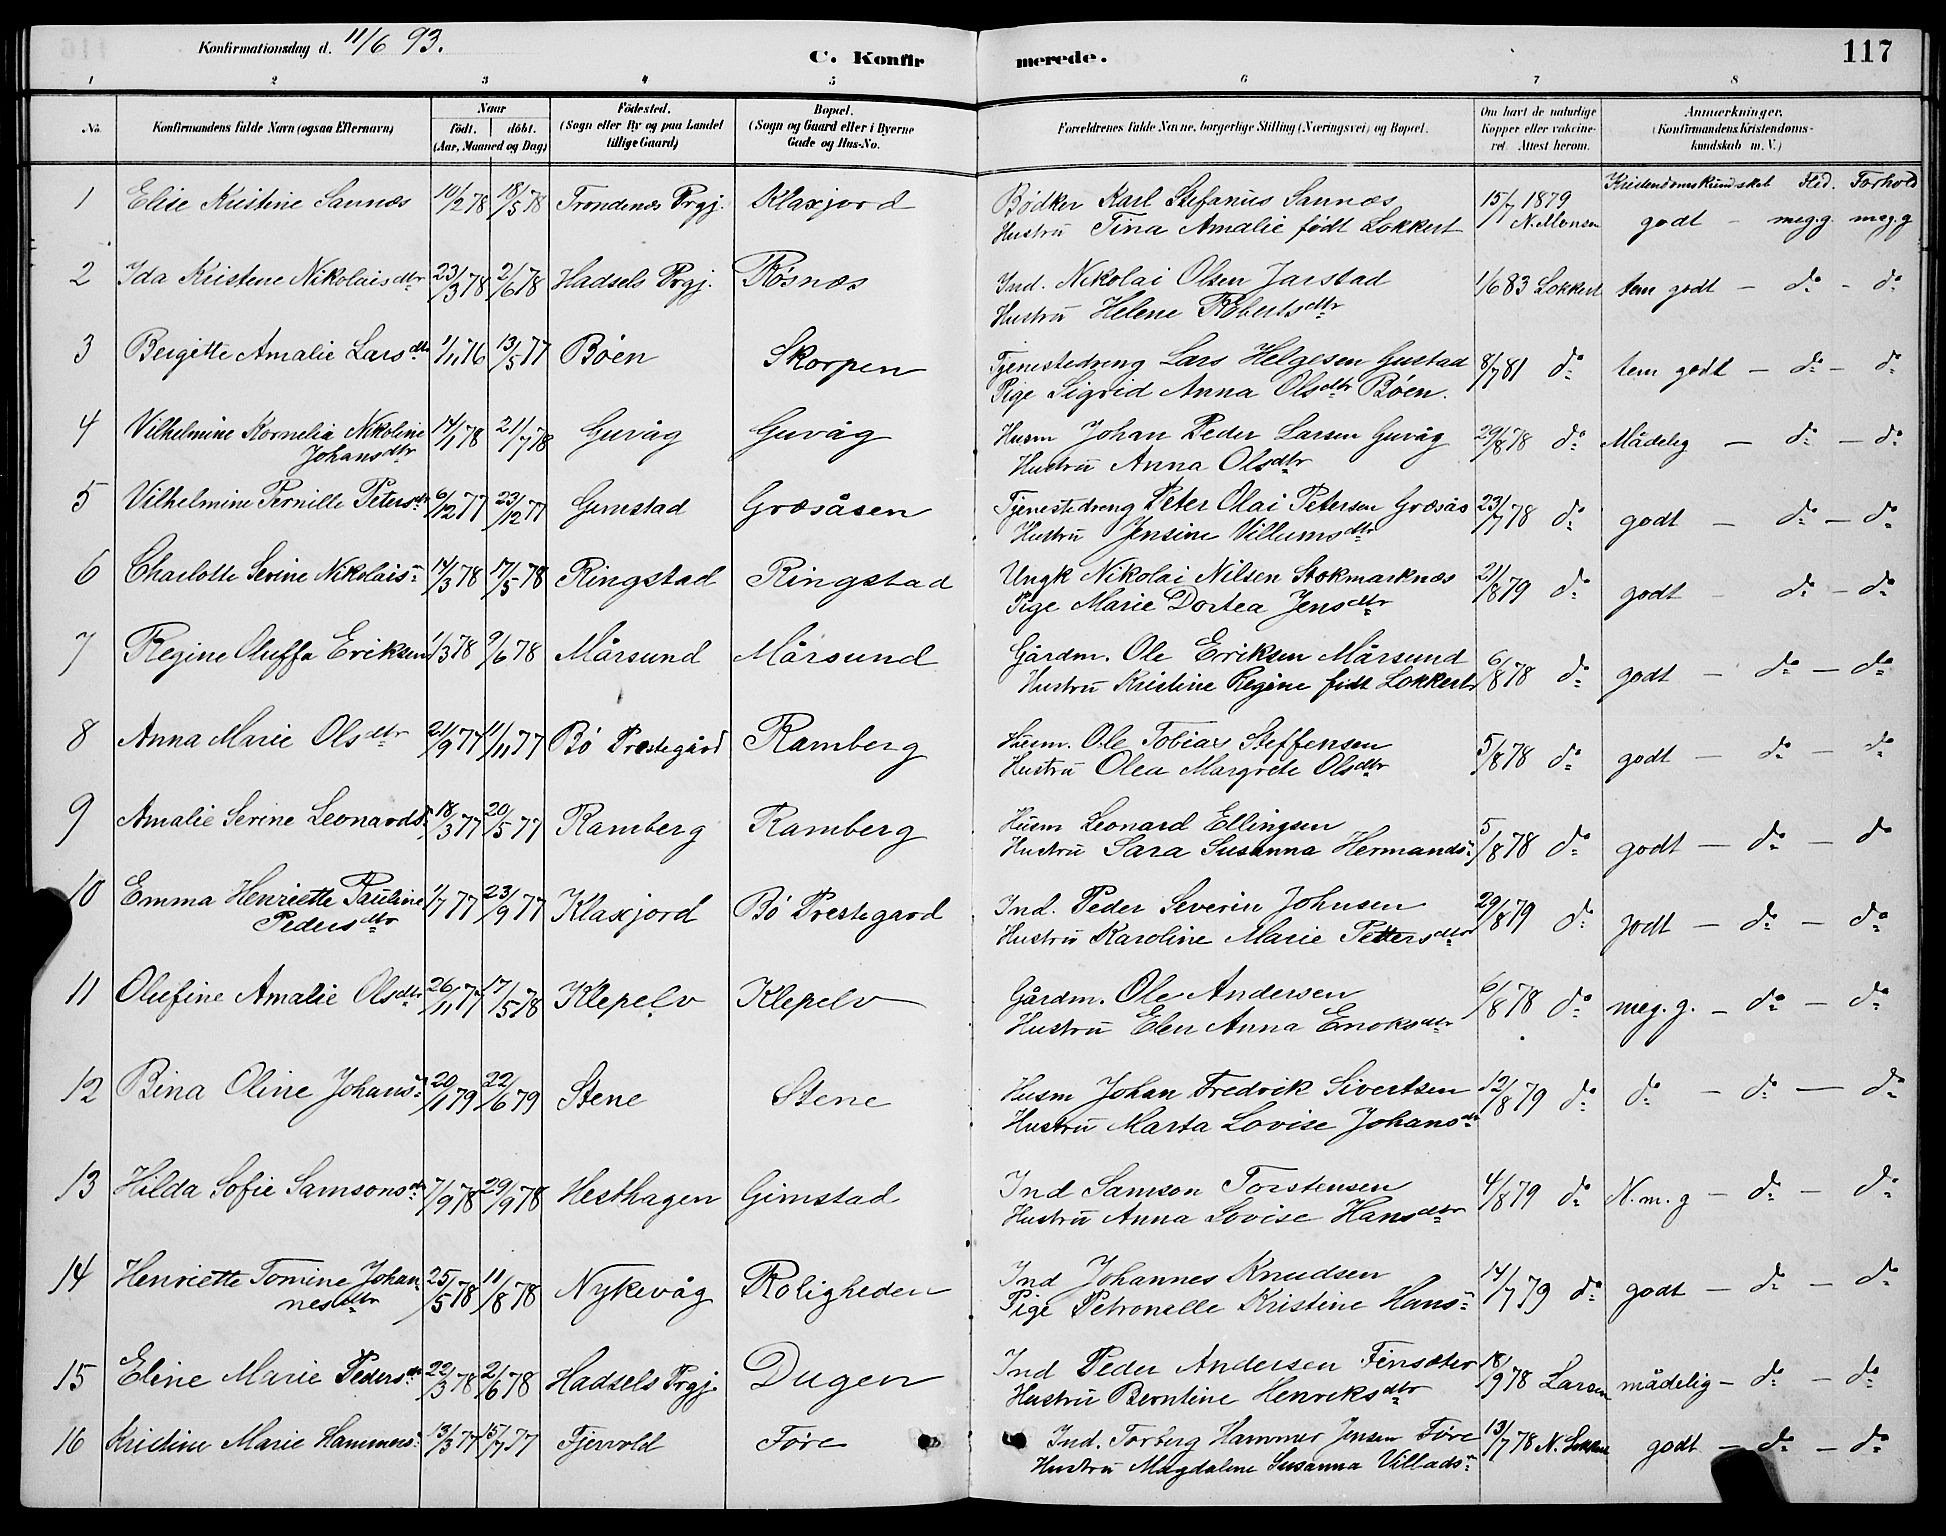 Konfirmationsdag d. 11/6 93.
C. Konfirmerede.
117
1 2 3 4 5 6 7 8
No. Konfirmandens fulde Navn (ogsaa Efternavn) Naar født. døbt. (Aar, Maaned og Dag) Födested. (Sogn eller By og paa Landet tillige Gaard) Bopæl. (Sogn og Gaard eller i Byerne Gade og Hus-No. Forældrenes fulde Navne, borgerlige Stilling (Næringsvei) og Bopæl. Om havt de naturlige Kopper eller vakcineret. Attest herom. Anmærkninger. (Konfirmandens Kristendomskundskab m. V.)
Kristendomskundskab Flid. Forhold
1 Elise Kristine Sannæs 10/2 78 18/5 78 Trondenæs Prgj. Klaxjord Bødker Karl Stefanus Sannæs 15/7 1879
Hustru Tina Amalie født Lokkert N. Monsen godt – meg.g. meg.g
2 Ida Kristene Nikolaisdtr 23/3 78 2/6 78 Hadsels Prgj. Røsnæs Ind. Nikolai Olsen Jarstad 1/6 83 Lokkert tem godt – do – do
Hustru Helene Robertsdtr
3 Bergitte Amalie Larsdtr 1/11 76 13/5 77 Bøen Skorpen Tjenestedreng Lars Helgesen Gustad 8/7 81 do tem godt – do – do
Pige Sigrid Anna Olsdtr Bøen.
4 Vilhelmine Kornelia Nikoline 14/1 78 21/7 78 Guvåg Guvåg Husm Johan Peder Larsen Guvåg 29/8 78 do Mådelig – do – do
Johansdtr Hustru Anna Olsdtr
5 Vilhelmine Pernille Petersdtr 6/12 77 23/12 77 Gimstad Græsåsen Tjenestedreng Peter Olai Petersen Græsås 23/7 78 do godt – do – do
Hustru Jensine Villumsdtr
6 Charlotte Serine Nikolais 14/3 78 17/5 78 Ringstad Ringstad Ungk Nikolai Nilsen Stokmarknæs 21/8 79 do godt – do – do
Pige Marie Dortea Jensdtr
7 Regine Oluffa Eriksen 1/3 78 9/6 78 Mårsund Mårsund Gårdm. Ole Eriksen Mårsund 6/8 78 do godt – do – do
Hustru Kristine Regine født Lokkert
8 Anna Marie Olsdtr 21/9 77 11/11 77 Bø Prestegård Ramberg Husm. Ole Tobias Steffensen 5/8 78 do godt – do – do
Hustru Olea Margrete Olsdtr
9 Amalie Serine Leonards 18/3 77 20/5 77 Ramberg Ramberg Husm Leonard Ellingsen 5/8 78 do godt – do – do
Hustru Sara Susanna Hermands
10 Emma Henriette Pauline 1/7 77 23/9 77 Klaxjord Bø Prestegard Ind. Peder Severin Johnsen 29/8 79 do godt – do – do
Pedersdtr Hustru Karoline Marie Pettersdtr
11 Olufine Amalie Olsdtr 26/11 77 17/5 78 Klepelv Klepelv Gårdm. Ole Andersen 6/8 78 do meg. g. – do – do
Hustru Elen Anna Enoksdtr
12 Bina Oline Johans 20/1 79 22/6 79 Stene Stene Husm Johan Fredrik Sivertsen 12/8 79 do do – do – do
Hustru Marta Lovise Johansdtr
13 Hilda Sofie Samsonsdtr 7/9 78 29/9 78 Hesthagen Gimstad Ind Samson Torstensen 4/8 79 do N. m. g – do – do
Hustru Anna Lovise Hansdtr
14 Henriette Tomine Johan 25/5 78 11/8 78 Nykevåg Roligheden Ind Johannes Knudsen 14/7 79 do godt – do – do
nesdtr Pige Petronelle Kristine Hans
15 Eline Marie Pedersdtr 22/3 78 2/6 78 Hadsels Prgj. Dugen Ind Peder Andersen Finsæter 18/9 78 Larsen mådelig – do – do
Hustru Berntine Henriksdtr
16 Kristine Marie Hammers 13/3 77 15/7 77 Fjervold Føre Ind. Torberg Hammer Jensen Føre 13/7 78 N. godt – do – do
Hustru Magdalene Susanna Villads